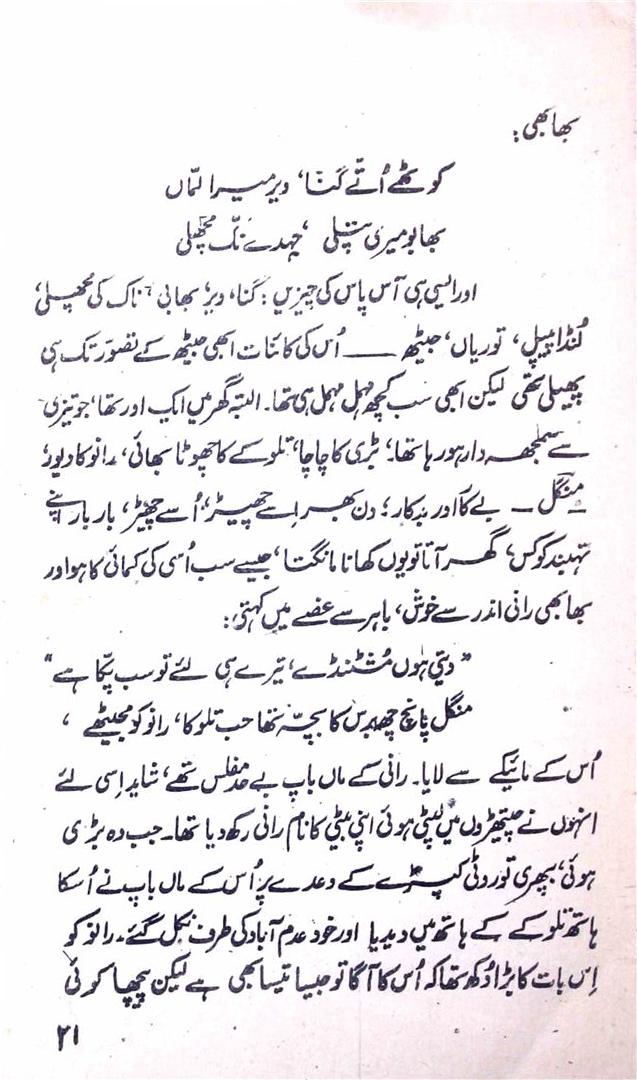 بھابھی:
کوٹھے اُتّے گنّا، ویر میرا لمّاں
بھابو میری پتلی، جہدے نک مچھلی
اور ایسی ہی آس پاس کی چیزیں: گنا، ویر، بھابی، ناک کی مچھلی،
کُنڈا پیپل، توریاں، جیٹھ —— اُس کی کائنات ابھی جیٹھ کے تصوّر تک ہی
پھیلی تھی لیکن ابھی سب کچھ مہمل مہمل ہی تھا۔ البتہ گھر میں ایک اور تھا، جو تیزی
سے سمجھ دار ہو رہا تھا۔ بڑی کا چاچا، تلوکے کا چھوٹا بھائی، رانو کا دیور،
منگل — بے کار اور بدکار؛ دن بھر اِسے چھیڑ، اُسے چھیڑ، بار بار اپنے
تہبند کو کس، گھر آتا تو یوں کھانا مانگتا، جیسے سب اُسی کی کمائی کا ہو اور
بھابھی رانی اندر سے خوش، باہر سے غصے میں کہتی:
”دیتی ہوں مُشٹنڈے، تیرے ہی لئے تو سب پکا ہے“
منگل پانچ چھ برس کا بچہ تھا جب تلوکا، رانو کو مجیٹھے،
اُس کے مائیکے سے لایا۔ رانی کے ماں باپ بے حد مفلس تھے، شاید اِسی لئے
انہوں نے چیتھڑوں میں لپٹی ہوئی اپنی بیٹی کا نام رانی رکھ دیا تھا۔ جب وہ بڑی
ہوئی، بپھری تو روٹی کپڑے کے وعدے پر اُس کے ماں باپ نے اُسکا
ہاتھ تلوکے کے ہاتھ میں دیدیا اور خود عدم آباد کی طرف نکل گئے۔ رانو کو
اِس بات کا بڑا دُکھ تھا کہ اُس کا آگا تو جیسا تیسا بھی ہے لیکن پیچھا کوئی
۲۱